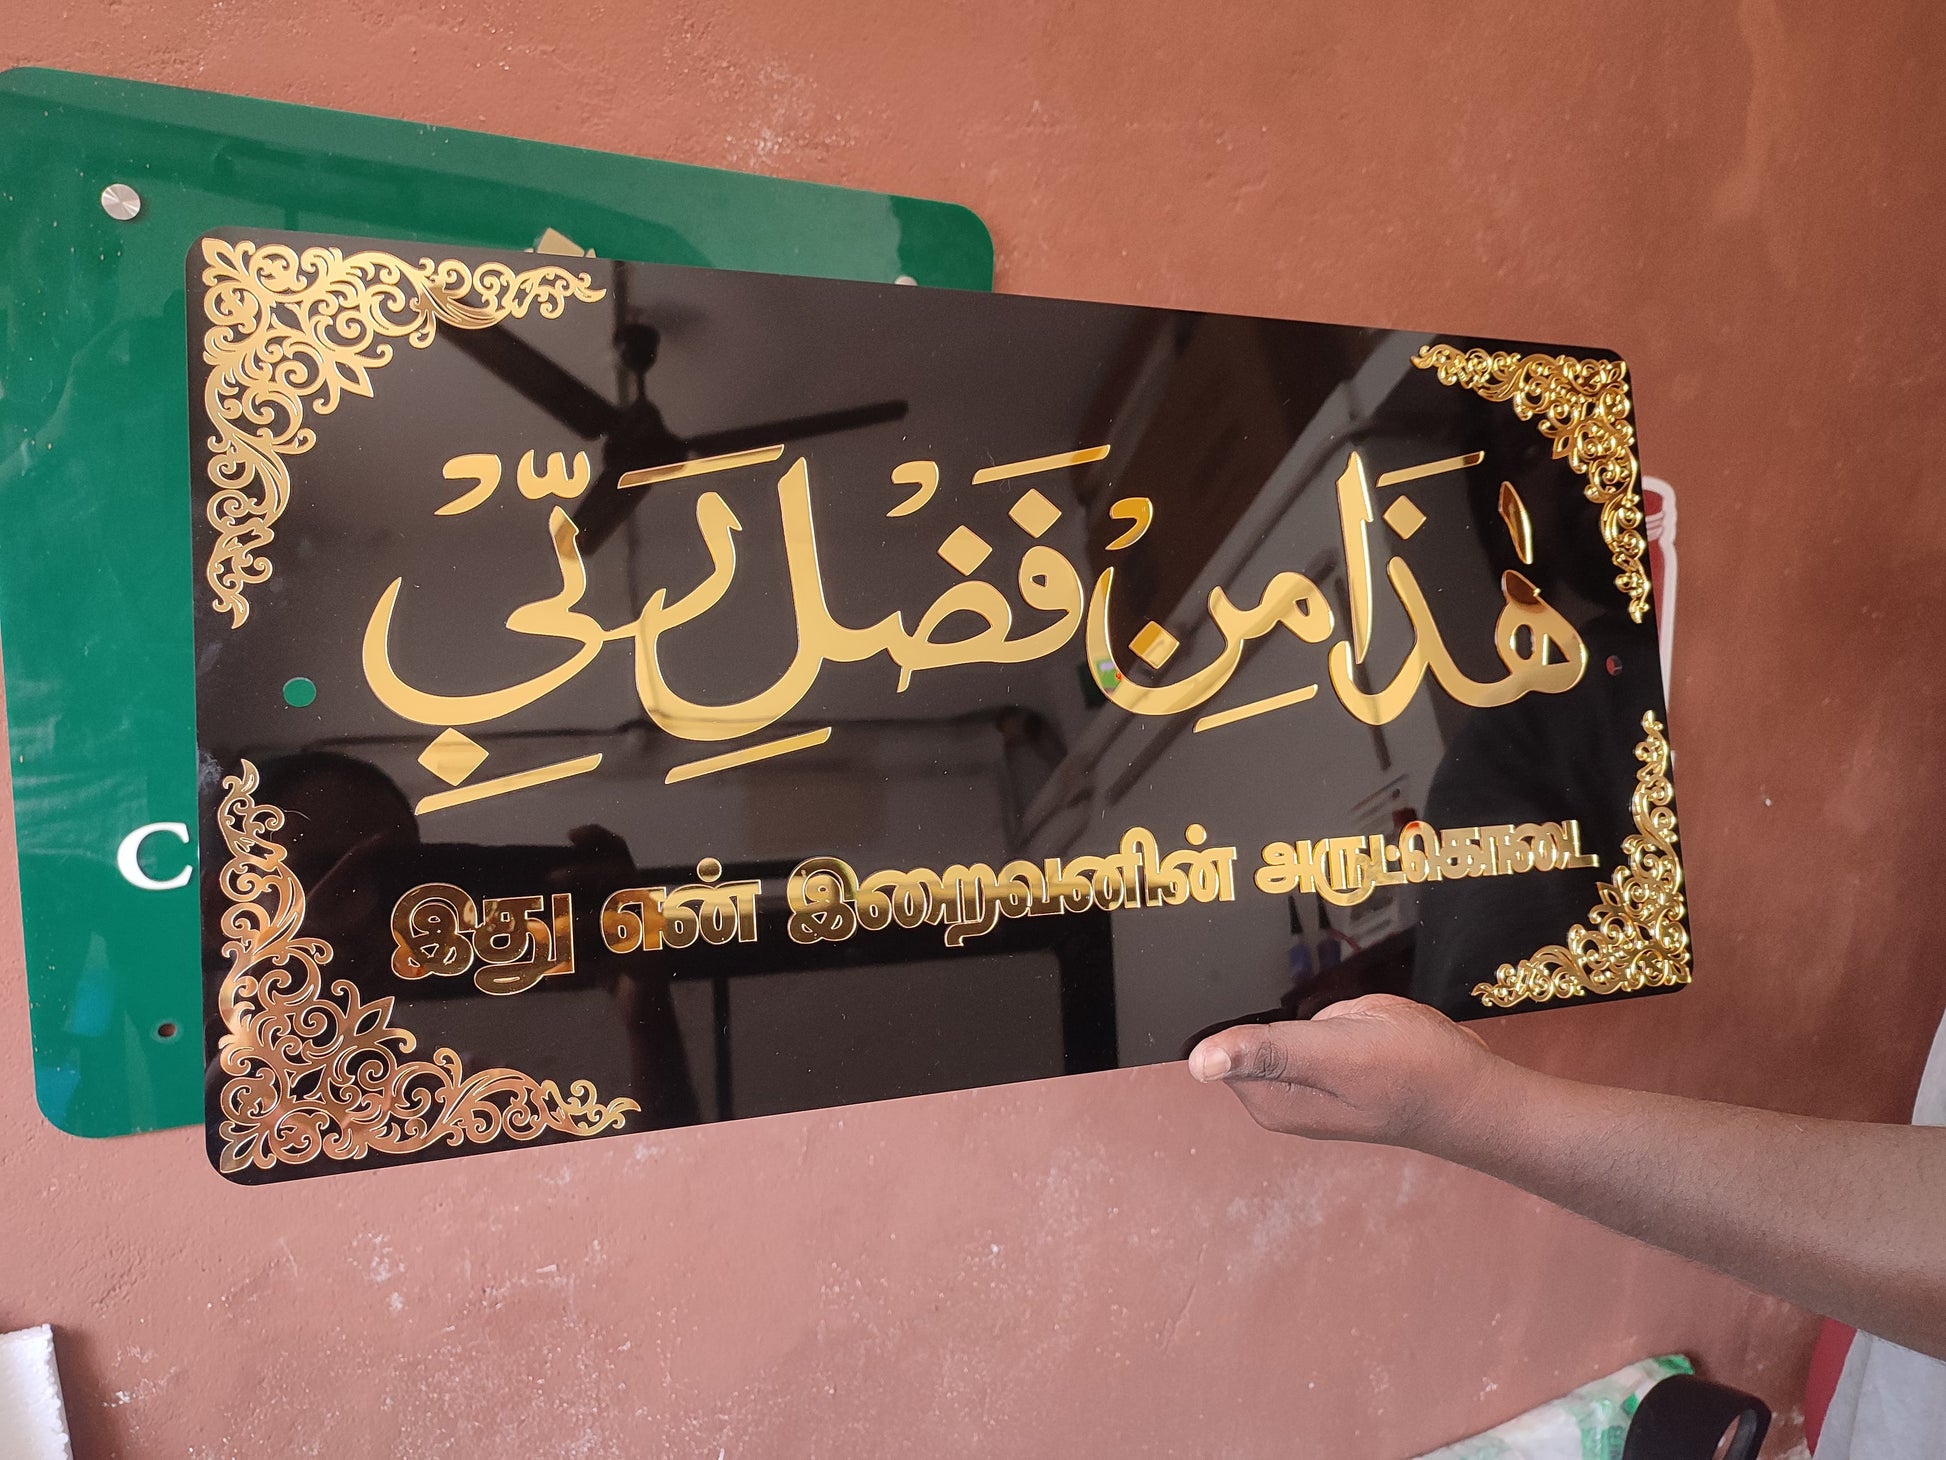 هٰذَا مِنْ فَضْلِ رَبِّيْ
இது என் இறைவனின் அருட்கொடை
C